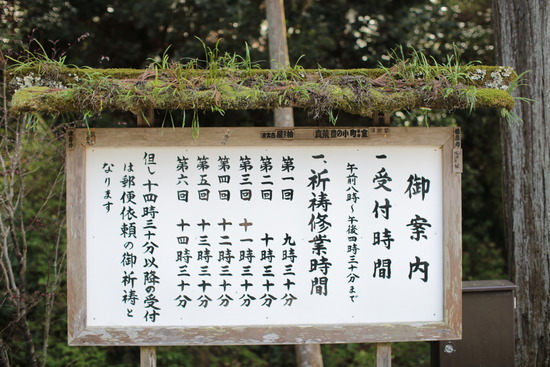 御案内
一 受付時間
午前八時～午後四時三十分まで
一、祈祷修業時間
第一回 九時三十分
第二回 十時三十分
第三回 十一時三十分
第四回 十二時三十分
第五回 十三時三十分
第六回 十四時三十分
但し十四時三十分以降の受付
は郵便依頼の御祈祷と
なります